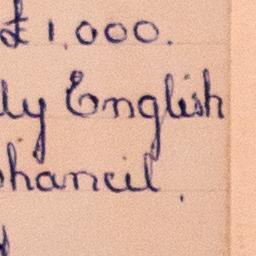 £1,000.
ly English
hancil.